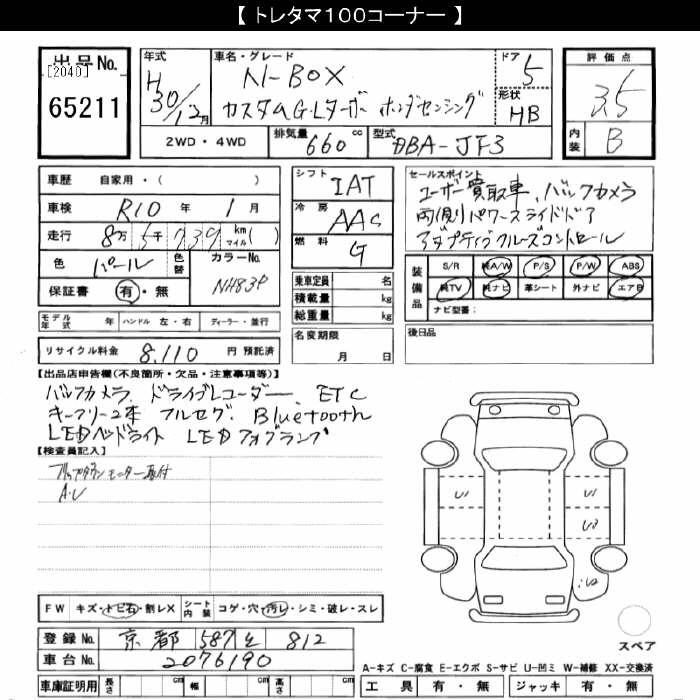 【 トレタマ100コーナー 】
出品No.
[2040]
65211
年式 H30/12月
車名・グレード N-BOX
カスタムG・Lターボ ホンダセンシング
ドア 5
形状 HB
評価点 3.5
内装 B
2WD・4WD
排気量 660 cc
型式 DBA-JF3
車歴 自家用・( )
車検 R10年 1月
走行 8万5千739 km マイル( )
色 パール 色替 カラーNo. NH83P
保証書 有・無
シフト IAT
冷房 AAC
燃料 G
乗車定員 名
積載量 kg
総重量 kg
名変期限 月 日
セールスポイント
ユーザー買取車、バックカメラ
両側パワースライドドア
アダプティブクルーズコントロール
装備品 S/R 純A/W P/S P/W ABS
純TV 純ナビ 革シート 外ナビ エアB
ナビ型番:
後日品
モデル年式 年 ハンドル 左・右 ディーラー・並行
リサイクル料金 8,110 円 預託済
【出品店申告欄(不良箇所・欠品・注意事項等)】
バックカメラ、ドライブレコーダー、ETC
キーフリー2本 フルセグ、Bluetooth
LEDヘッドライト LEDフォグランプ
【検査員記入】
フリップダウンモニター取付
A・U
U1
U1
U3
FW キズ・トビ石・割レX シート内装 コゲ・穴・汚レ・シミ・破レ・スレ
登録No. 京都 587 を 812
車台No. 2076190
車庫証明用 長さ cm 幅 cm 高さ cm
スペア
A-キズ C-腐食 E-エクボ S-サビ U-凹ミ W-補修 XX-交換済
工具 有・無 ジャッキ 有・無